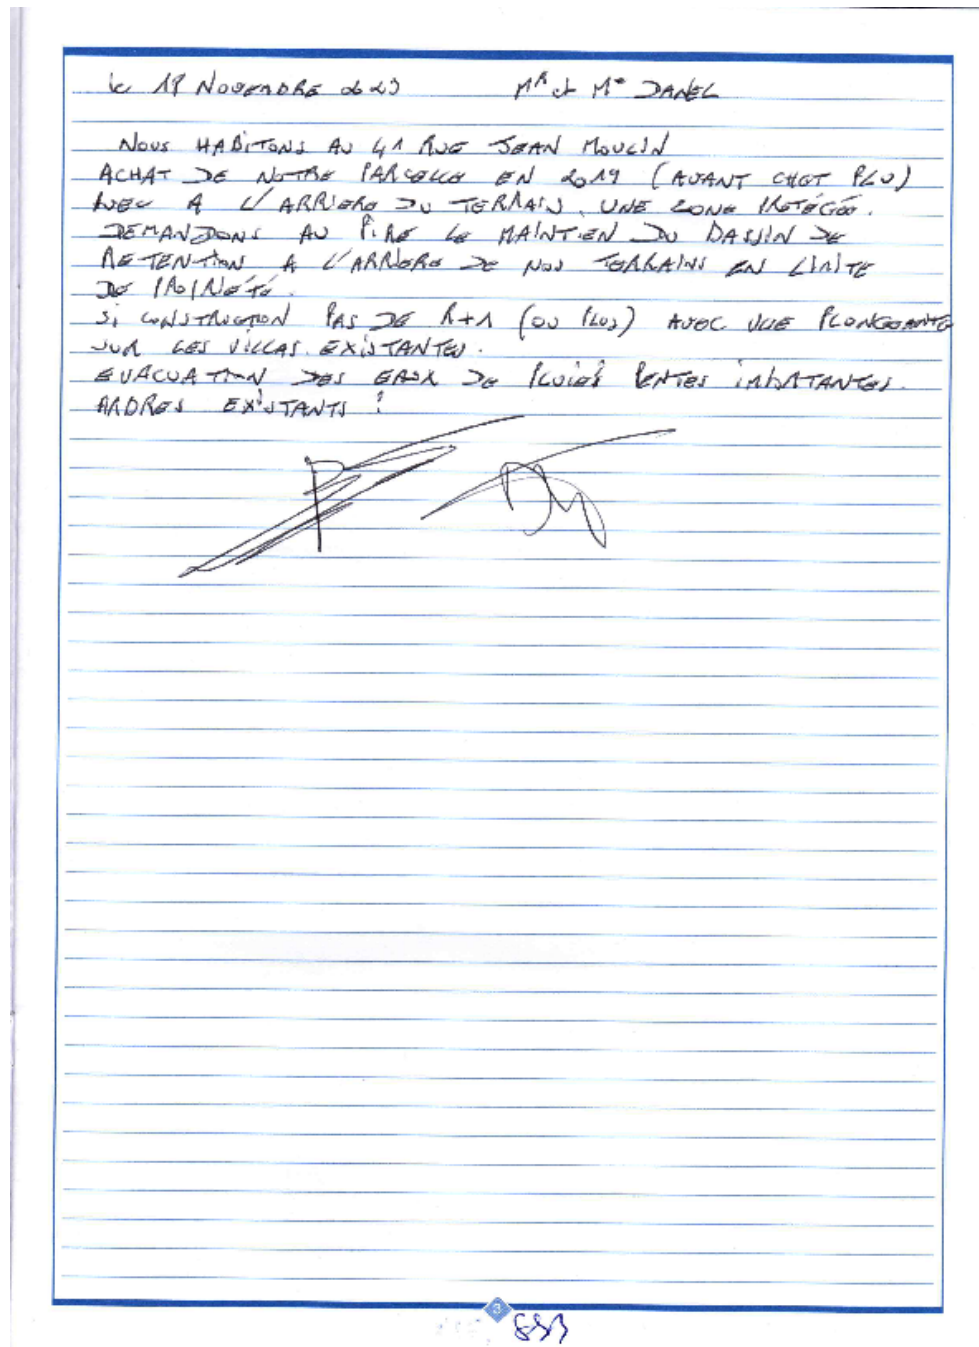 le 18 NOVEMBRE 2023 Mr et Me DANEL
NOUS HABITONS AU 41 RUE JEAN MOULIN
ACHAT DE NOTRE PARCELLE EN 2019 (AVANT PLU)
AVEC A L'ARRIERE DU TERRAIN, UNE ZONE PROTÉGÉE.
DEMANDONS AU PIRE LE MAINTIEN DU BASSIN DE
RETENTION A L'ARRIERE DE NOS TERRAINS EN LIMITE
DE PROPRIÉTÉ.
SI CONSTRUCTION PAS DE R+1 (OU PLUS) AVEC VUE PLONGEANTE
SUR LES VILLAS EXISTANTES.
EVACUATION DES EAUX DE PLUIES PENTES IMPORTANTES.
ARBRES EXISTANTS ?
3